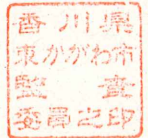 香川県
東かがわ市
監査
委員之印